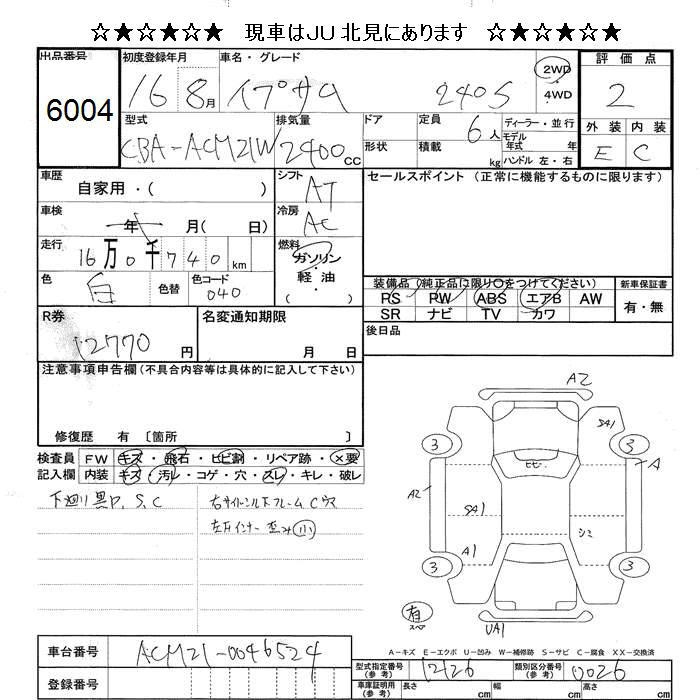 ☆★☆★☆★ 現車はJU 北見にあります ☆★☆★☆★
出品番号 初度登録年月 車名・グレード 評価点
6004 16 8月 イプサム 240S 2WD ・ 4WD 2
型式 排気量 ドア 定員 6人 ディーラー・並行 外装 内装
CBA-ACM21W 2400cc 形状 積載 kg モデル年式 年 ハンドル 左・右 E C
車歴 自家用・( ) シフト AT セールスポイント (正常に機能するものに限ります)
車検 年 月( 日) 冷房 AC
走行 16万0千740km 燃料 ガソリン・軽油 ( )
色 白 色替 色コード 040
装備品 (純正品に限り○をつけてください) 新車保証書
PS PW ABS エアB AW 有・無
SR ナビ TV カワ
R券 12770円 名変通知期限 月 日 後日品
注意事項申告欄 (不具合内容等は具体的に記入して下さい)
修復歴 有 〔箇所 〕
検査員 FW キズ・飛石・ヒビ割・リペア跡・×要
記入欄 内装 キズ・汚レ・コゲ・穴・スレ・キレ・破レ
下廻り黒P、S、C 右サイドシル下フレームC穴
歪み 小
A2
SA1
3 3
ヒビ A
A2
SA1 シミ
A1
3 3
有
スペア UA1
A－キズ E－エクボ U－凹み W－補修跡 S－サビ C－腐食 XX－交換済
車台番号 ACM21-0046524 型式指定番号(参考) 12126 類別区分番号(参考) 0026
登録番号 車庫証明用(参考) 長さ cm 幅 cm 高さ cm